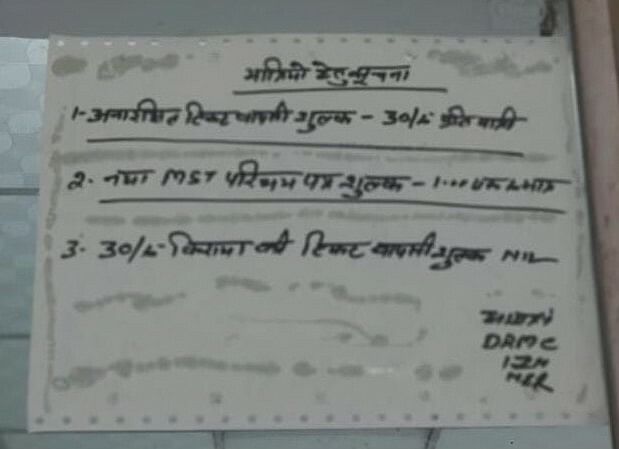 यात्रियो हेतु सूचना
1- अनारक्षित टिकट वापसी शुल्क - 30/- प्रति यात्री
2. नया MST परिचय पत्र शुल्क - 1.00 रू मात्र
3. 30/- किराया की टिकट वापसी शुल्क NIL
DRM C
IZN
NER